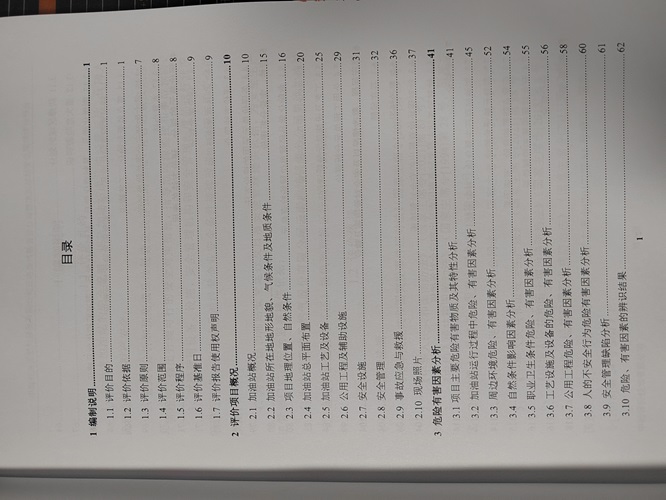 目录
1 编制说明........1
1.1 评价目的........1
1.2 评价依据........1
1.3 评价原则........7
1.4 评价范围........8
1.5 评价程序........8
1.6 评价基准日........9
1.7 评价报告使用权声明........9
2 评价项目概况........10
2.1 加油站概况........10
2.2 加油站所在地地形地貌、气候条件及地质条件........15
2.3 项目地理位置、自然条件........16
2.4 加油站总平面布置........20
2.5 加油站工艺及设备........25
2.6 公用工程及辅助设施........29
2.7 安全设施........31
2.8 安全管理........32
2.9 事故应急与救援........36
2.10 现场照片........37
3 危险有害因素分析........41
3.1 项目主要危险有害物质及其特性分析........41
3.2 加油站运行过程中危险、有害因素分析........45
3.3 周边环境危险、有害因素分析........52
3.4 自然条件影响因素分析........54
3.5 职业卫生条件危险、有害因素分析........55
3.6 工艺设施及设备的危险、有害因素分析........56
3.7 公用工程危险、有害因素分析........58
3.8 人的不安全行为危险有害因素分析........60
3.9 安全管理缺陷分析........61
3.10 危险、有害因素的辨识结果........62
1